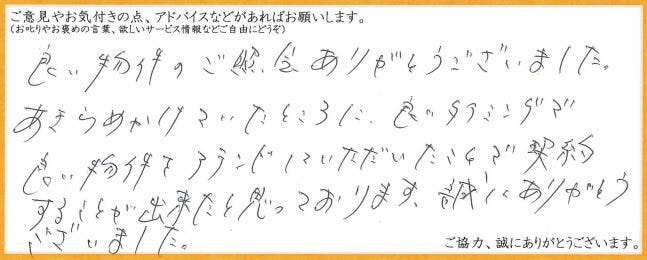 ご意見やお気付きの点、アドバイスなどがあればお願いします。
(お叱りやお褒めの言葉、欲しいサービス情報などご自由にどうぞ)
良い物件のご紹介ありがとうございました。
あきらめかけていたところに、良いタイミングで
良い物件をアテンドしていただいたことで契約
することが出来たと思っております。誠にありがとう
ございました。
ご協力、誠にありがとうございます。